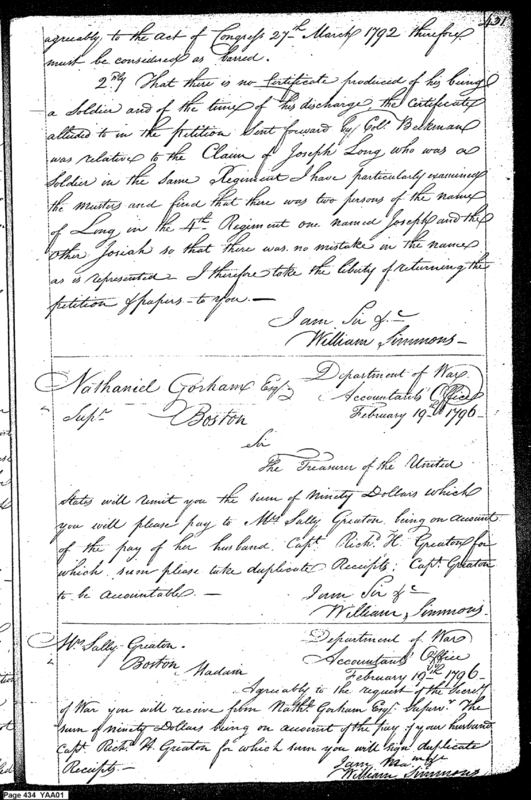 431
agreeably to the Act of Congress 27th March 1792 therefore
must be considered as barred.
2ndly That there is no Certificate produced of his being
a Soldier and of the time of his discharge, the Certificate
alluded to in the petition sent forward by Gol. Beekman
was relative to the Claim of Joseph Long who was a
Soldier in the same Regiment I have particularly examined
the musters and find that there was two persons of the name
of Long in the 4th Regiment one named Joseph and the
other Josiah so that there was no mistake in the name
as is represented I therefore take the liberty of returning the
petition & papers to you.
I am Sir &c
William Simmons
Nathaniel Gorham Esqr
Department of War
Accountants Office
Supr Boston
February 19th 1796
Sir
The Treasurer of the United
States will remit you the sum of ninety Dollars which
you will please pay to Mrs Sally Greaton being on account
of the pay of her husband Capt Richd H. Greaton for
which sum please take duplicate Receipts; Capt Greaton
to be accountable.
I am Sir &c
William Simmons
Mrs Sally Greaton.
Department of War
Boston
Accountants Office
Madam
February 19th 1796
Agreeably to the request of the Secrety
of War you will receive from Nathl Gorham Esqr Supervr The
sum of ninety Dollars being on account of the pay of your husband
Capt Richd H Greaton for which sum you will sign duplicate
Receipts
I am Madm &c
William Simmons
Page 434 YAA01